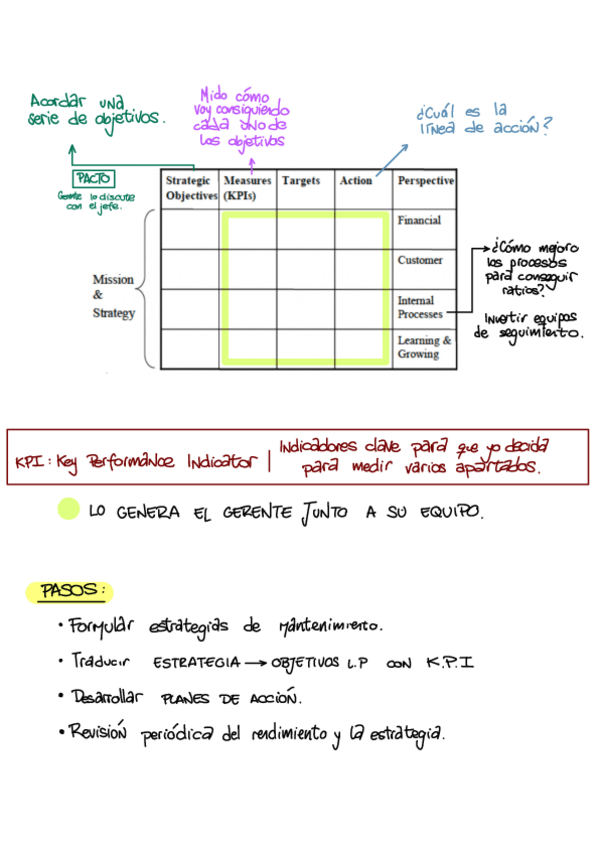 Acordar una
serie de objetivos.
Mido cómo
voy consiguiendo
cada uno de
los objetivos
¿Cuál es la
línea de acción?
PACTO
Gerente lo discute
con el jefe.
Strategic Objectives
Measures (KPIs)
Targets
Action
Perspective
Financial
Customer
Internal
Processes
Learning &
Growing
Mission
&
Strategy
¿Cómo mejoro
los procesos
para conseguir
ratios?
Invertir equipos
de seguimiento.
KPI: Key Performance Indicator |
Indicadores clave para que yo decida
para medir varios apartados.
LO GENERA EL GERENTE JUNTO A SU EQUIPO.
PASOS:
• Formular estrategias de mantenimiento.
• Traducir ESTRATEGIA → OBJETIVOS L.P CON K.P.I
• Desarrollar PLANES DE ACCIÓN.
• Revisión periódica del rendimiento y la estrategia.